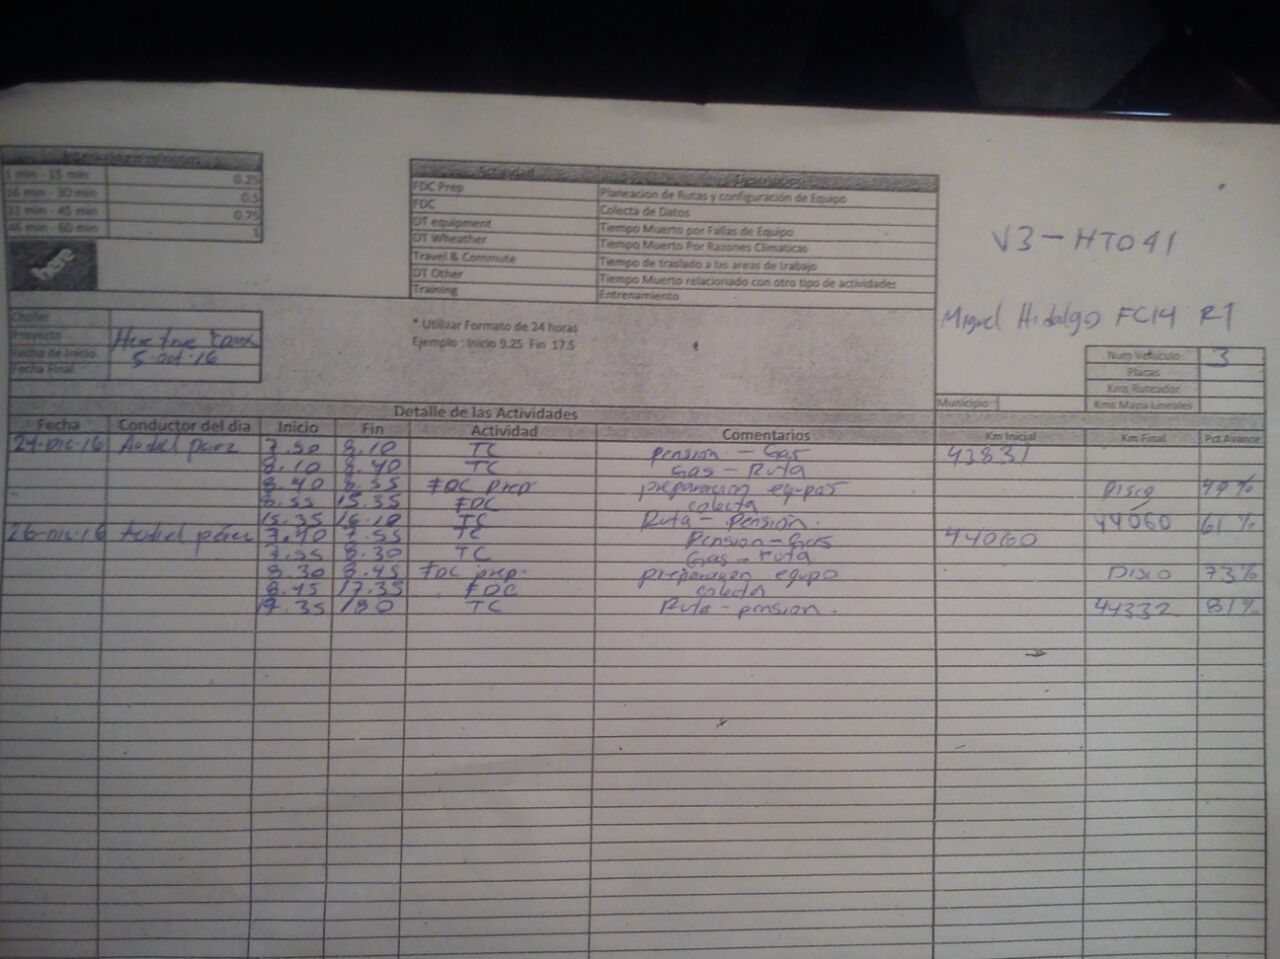 Intervalos en minutos
1 min - 15 min 0.25
16 min - 30 min 0.5
31 min - 45 min 0.75
46 min - 60 min 1
here
Actividad
FDC Prep Planeacion de Rutas y configuración de Equipo
FDC Colecta de Datos
DT equipment Tiempo Muerto por Fallas de Equipo
DT Wheather Tiempo Muerto Por Razones Climaticas
Travel & Commute Tiempo de traslado a las areas de trabajo
DT Other Tiempo Muerto relacionado con otro tipo de actividades
Training Entrenamiento
V3-HT041
Miguel Hidalgo FC14 R1
Chofer
Proyecto Here true
Fecha de Inicio 5-oct-16
Fecha Final
* Utilizar Formato de 24 horas
Ejemplo : Inicio 9.25 Fin 17.5
Num Vehiculo 3
Placas
Kms Ruteador
Municipio Kms Mapa Lineales
Detalle de las Actividades
Fecha Conductor del dia Inicio Fin Actividad Comentarios Km Inicial Km Final Pct Avance
24-Dic-16 Audiel perez 7.50 8.10 TC pension - Gas 43831
8.10 8.40 TC Gas - Ruta
8.40 8.55 FDC prep preparacion Disco 49%
8.55 15.35 FDC colecta
15.35 16.10 TC Ruta - Pensión. 44060 61%
26-Dic-16 Audiel pérez 7.40 7.55 TC Pension-Gas 44060
7.55 8.30 TC Gas - ruta
8.30 8.45 FDC prep. equipo Disco 73%
8.45 17.35 FDC colecta
17.35 TC Ruta-pension. 44332 81%